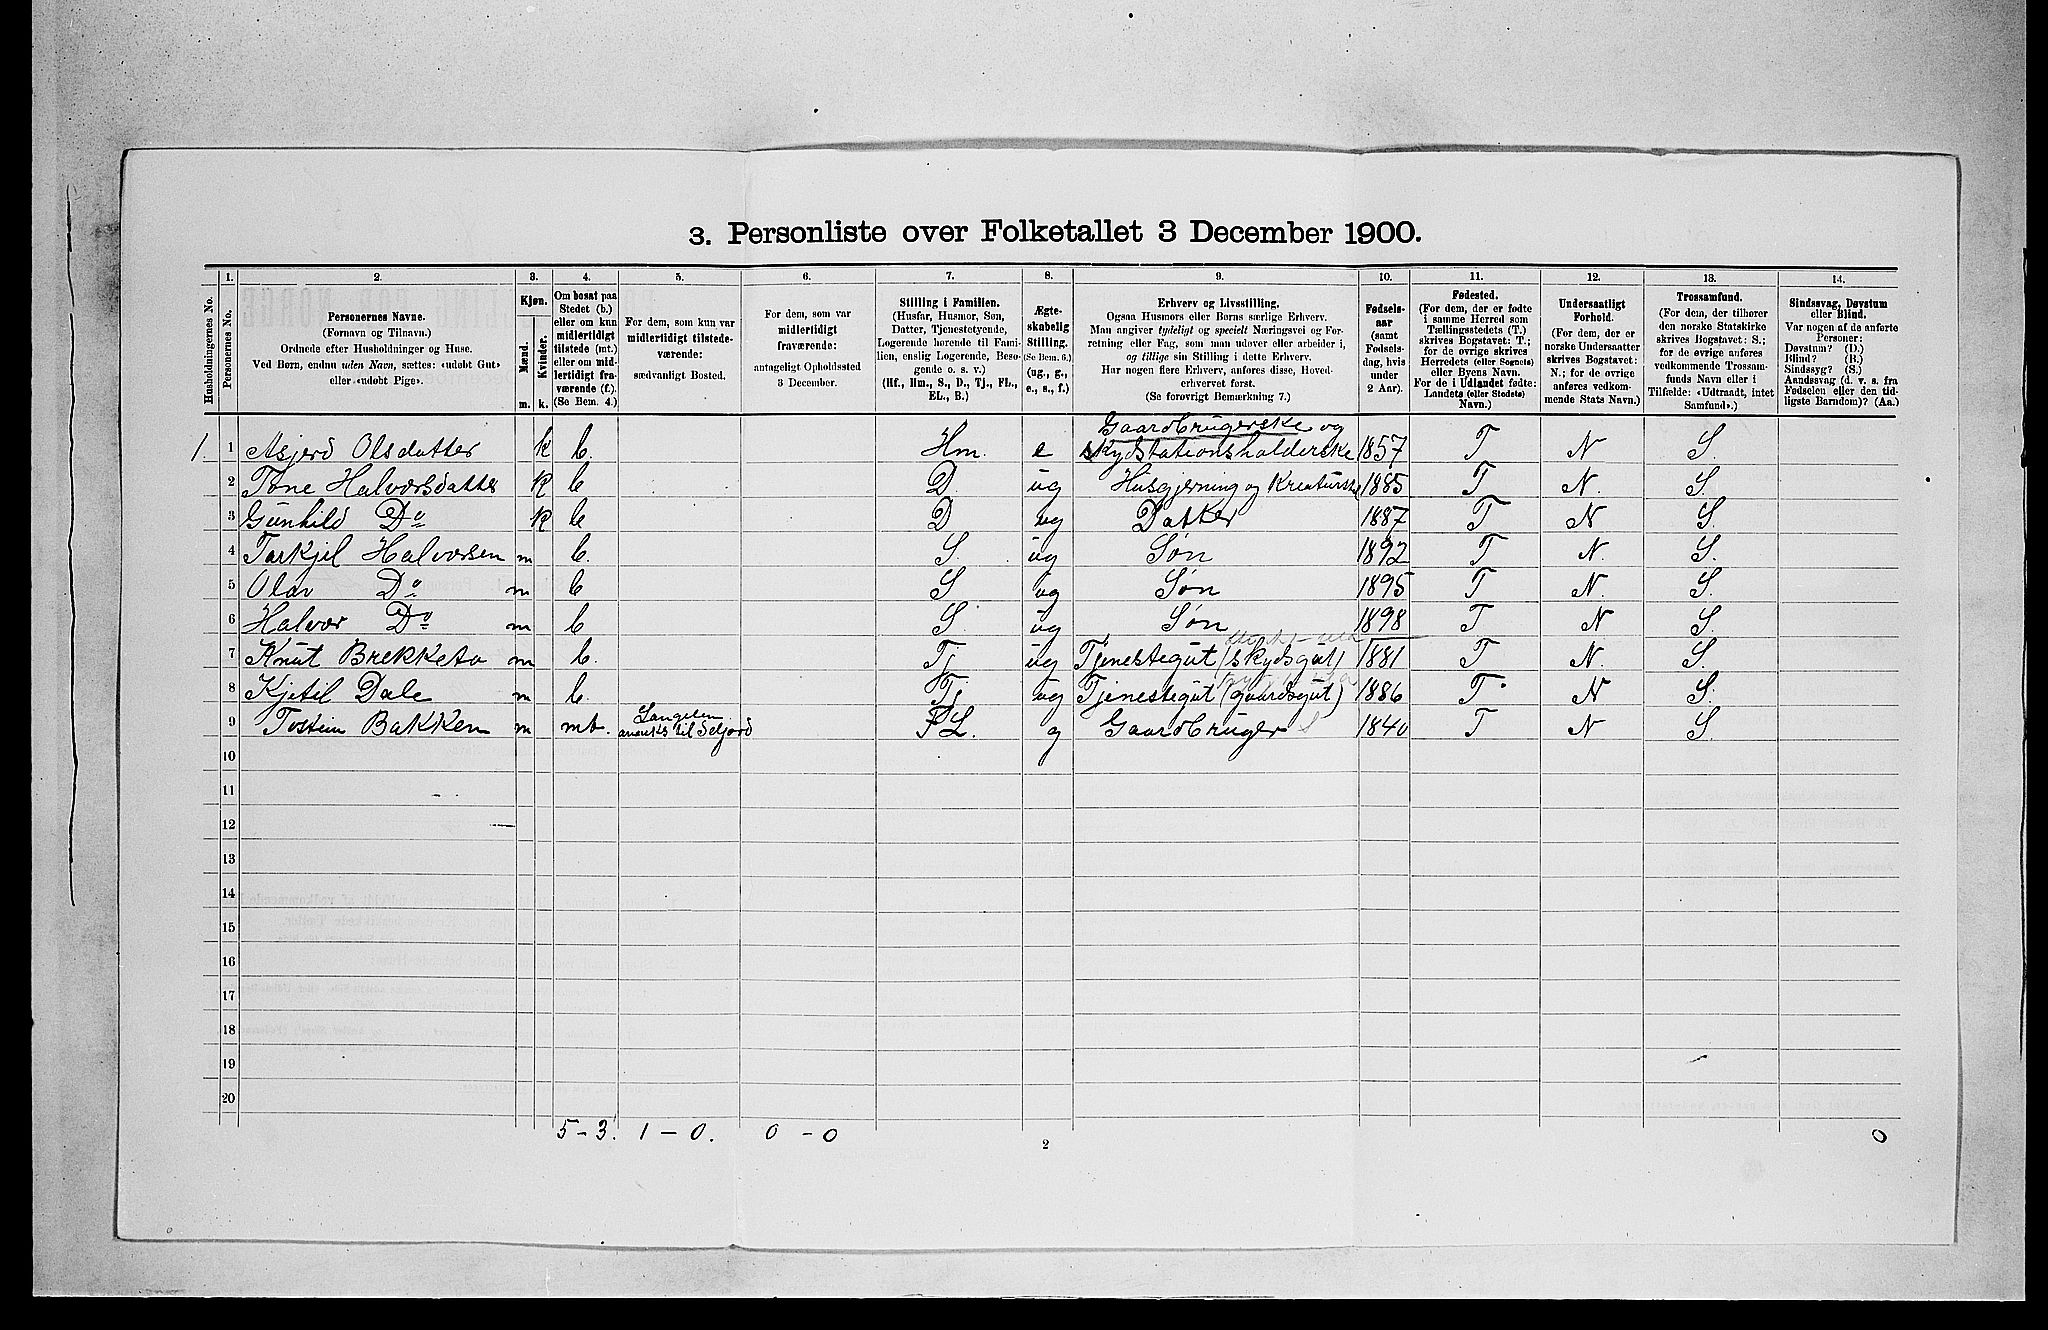 3. Personliste over Folketallet 3 December 1900.
Husholdningernes No.
1. Personernes No.
2. Personernes Navne.
(Fornavn og Tilnavn.)
Ordnede efter Husholdninger og Huse.
Ved Børn, endnu uden Navn, sættes: «udøbt Gut»
eller «udøbt Pige».
3. Kjøn.
Mænd. Kvinder.
m. k.
4. Om bosat paa
Stedet (b.)
eller om kun
midlertidigt
tilstede (mt.)
eller om mid-
lertidigt fra-
værende (f.).
(Se Bem. 4.)
5. For dem, som kun var
midlertidigt tilstede-
værende:
sædvanligt Bosted.
6. For dem, som var
midlertidigt
fraværende:
antageligt Opholdssted
3 December.
7. Stilling i Familien.
(Husfar, Husmor, Søn,
Datter, Tjenestetyende,
Logerende hørende til Fami-
lien, enslig Logerende, Besø-
gende o. s. v.)
(Hf., Hm., S., D., Tj., FL.,
EL., B.)
8. Ægte-
skabelig
Stilling.
(Se Bem. 6.)
(ug., g.,
e., s., f.)
9. Erhverv og Livsstilling.
Ogsaa Husmors eller Børns særlige Erhverv.
Man angiver tydeligt og specielt Næringsvei og For-
retning eller Fag, som man udøver eller arbeider i,
og tillige sin Stilling i dette Erhverv.
Har nogen flere Erhverv, anføres disse, Hoved-
erhvervet først.
(Se forøvrigt Bemærkning 7.)
10. Fødsels-
aar
(samt
Fødsels-
dag, hvis
under
2 Aar.)
11. Fødested.
(For dem, der er fødte
i samme Herred som
Tællingsstedets (T.)
skrives Bogstavet: T.;
for de øvrige skrives
Herredets (eller Sognets)
eller Byens Navn.
For de i Udlandet fødte:
Landets (eller Stedets)
Navn.)
12. Undersaatligt
Forhold.
(For dem, der er
norske Undersaatter
skrives Bogstavet:
N.; for de øvrige
anføres vedkom-
mende Stats Navn.)
13. Trossamfund.
(For dem, der tilhører
den norske Statskirke
skrives Bogstavet: S.;
for de øvrige anføres
vedkommende Trossam-
funds Navn eller i
Tilfælde: «Udtraadt, intet
Samfund».)
14. Sindssvag, Døvstum
eller Blind.
Var nogen af de anførte
Personer:
Døvstum? (D.)
Blind? (B.)
Sindssyg? (S.)
Aandssvag (d. v. s. fra
Fødselen eller den tid-
ligste Barndom)? (Aa.)
1. 1 Asjerd Olsdatter k b. Hm. e Gaardbrugerske og skydstationsholderske 1857 T N S.
2 Tone Halvorsdatter k b D. ug Husgjerning og Kreaturst 1885 T N. S.
3 Gunhild Do k b D ug Datter 1887 T N S.
4 Tarkjil Halvorsen m b. S. ug Søn 1892 T N. S.
5 Olav Do m b S ug Søn 1895 T N. S.
6 Halvor Do m b S ug Søn 1898 T N S
7 Knut Brekketo m b. Tj ug Tjenestegut (skydsgut) 1881 T N. S.
8 Kjetil Dale m b. Tj ug Tjenestegut (gaardsgut) 1886 T. N S.
9 Tostein Bakken m mt. Langelen anneks til Seljord FL. g Gaardbruger 1840 T N S.
10
11
12
13
14
15
16
17
18
19
20
5 - 3. 1 - 0. 0 - 0 0
2